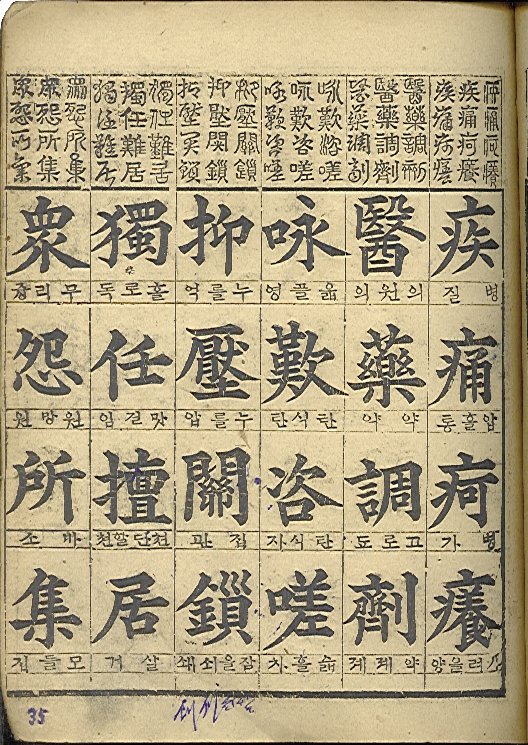 疾痛疴癢
醫藥調劑
咏歎咨嗟
抑壓關鎖
衆怨所集
疾
병 질
痛
압흘 통
疴
병 가
癢
려을 양
醫
의원 의
藥
약 약
調
고로 됴
劑
약 졔
咏
읇플 영
歎
탄식 탄
咨
탄식 자
嗟
슯흘 차
抑
누를 억
壓
누를 압
關
관
鎖
잡을쇠 쇄
獨
홀로 독
任
맛질 임
擅
쳔단할 쳔
居
살 거
衆
무리 즁
怨
원망 원
所
바 소
集
모들 집
35